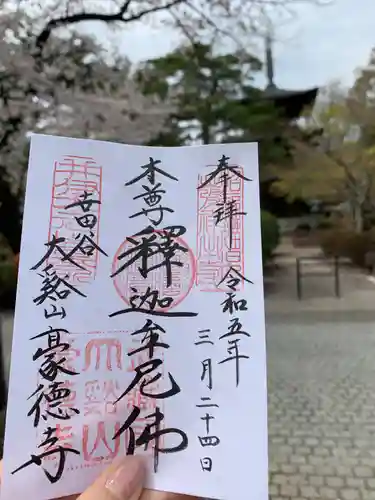 奉拝
令和五年
三月二十四日
本尊
釋迦牟尼佛
世田谷
大谿山
豪德寺